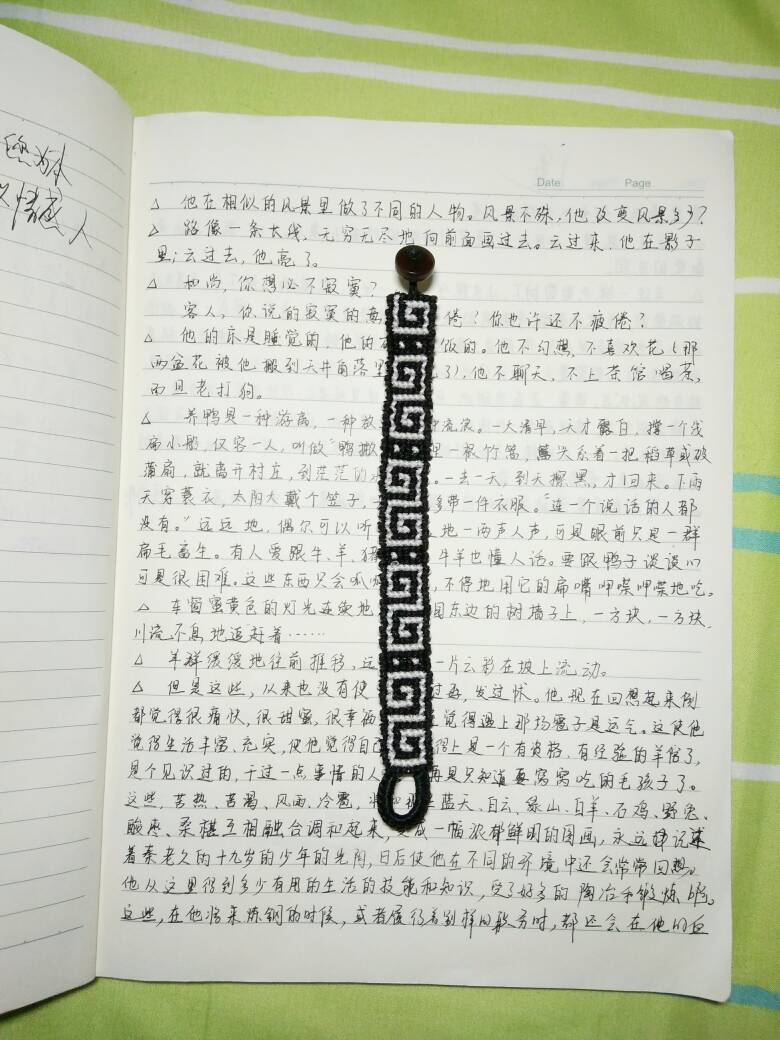 为本
情感人
Date.
Page.
△ 他在相似的风景里做了不同的人物。风景不殊,他改变风景多少?
△ 路像一条大线,无穷无尽地向前面画过去。云过来,他在影子
里;云过去,他亮了。
△ 和尚,你想必不寂寞?
客人,你说的寂寞的 倦?你也许还不疲倦?
△ 他的床是睡觉的,他的 饭的。他不幻想,不喜欢花(那
两盆花被他搬到天井角落里 了),他不聊天,不上茶馆喝茶,
而且老打狗。
△ 养鸭是一种游离,一种放 流浪。一大清早,天才露白,撑一个浅
扁小船,仅容一人,叫做“鸭撇 里一根竹篙,篙头系着一把稻草或破
蒲扇,就离开村庄,到茫茫的 。一去一天,到天擦黑,才回来。下雨
天穿蓑衣,太阳大戴个笠子, 多带一件衣服。“连一个说话的人都
没有。”远远地,偶尔可以听 地一两声人声,可是眼前只是一群
扁毛畜生。有人爱跟牛、羊、猪 牛羊也懂人话。要跟鸭子谈谈心
可是很困难。这些东西只会呱 不停地用它的扁嘴呷喋呷喋地吃。
△ 车窗蜜黄色的灯光连续地 东边的树墙子上,一方块,一方块,
川流不息地追赶着……
△ 羊群缓缓地往前推移,远 一片云彩在坡上流动。
△ 但是这些,从来也没有使 过,发过怵。他现在回想起来倒
都觉得很痛快,很甜蜜,很幸福 觉得遇上那场雹子是运气。这使他
觉得生活丰富、充实,使他觉得自己 得上是一个有资格、有经验的羊倌了,
是个见识过的,干过一点事情的人 再是只知道要窝窝吃的毛孩子了。
这些,苦热、苦渴、风雨、冷雹,将 蓝天、白云、绿山、白羊、石鸡、野兔、
酸枣、桑椹互相融合调和起来, 成一幅浓郁鲜明的图画,永远标记
着秦老九的十九岁的少年的光阴,日后使他在不同的环境中还会常常回想。
他从这里得到多少有用的生活的技能和知识,受了好多的陶冶和锻炼啊。
这些,在他将来炼钢的时候,或者履行着别样的职务时,都还会在他的血